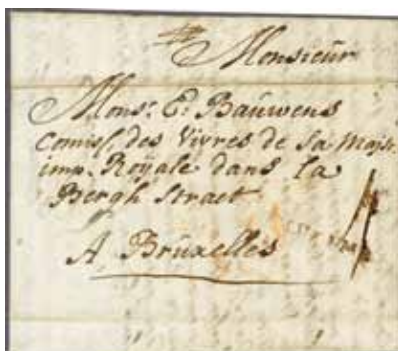 Monsieür
Mons.r E: Baüwens
Comiss. des Vivres de Sa Majst.
imp. Roÿale dans la
Bergh Straet
A Brüxelles